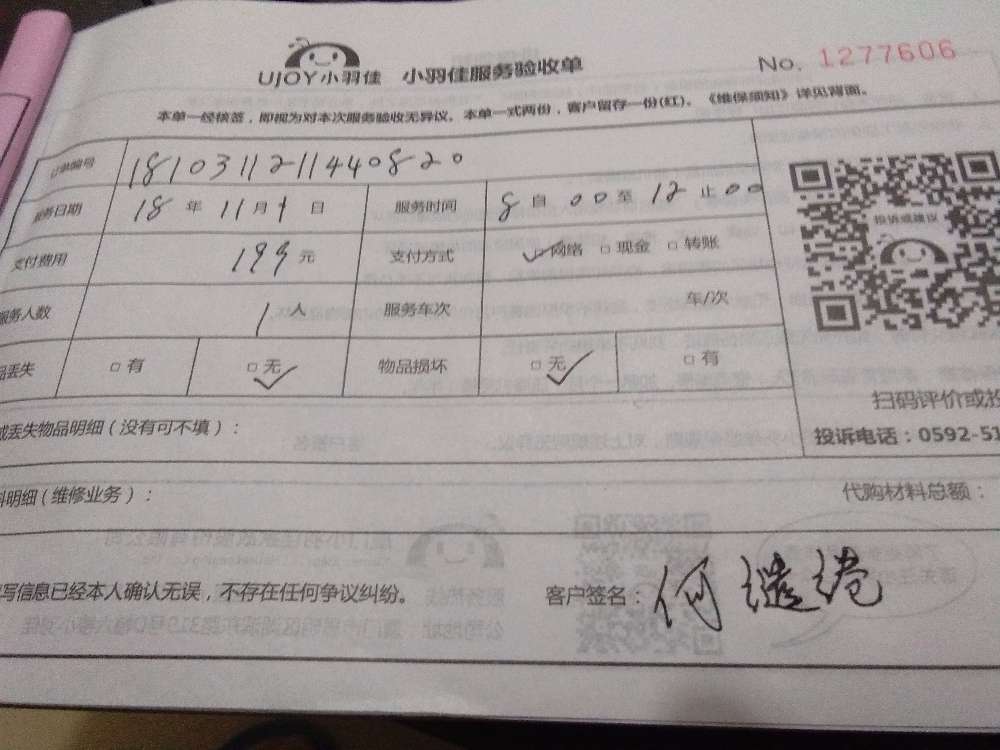 UJOY小羽佳 小羽佳服务验收单 No. 1277606
本单一经核签，即视为对本次服务验收无异议。本单一式两份，客户留存一份(红)。《维保须知》详见背面。
订单编号 1810311211440820
服务日期 18 年 11 月 1 日 服务时间 8 自 00 至 12 止 00
支付费用 199 元 支付方式 ☑网络 □现金 □转账
服务人数 1 人 服务车次 车/次
品丢失 □有 □无✓ 物品损坏 □无✓ □有
投诉或建议
扫码评价或投
投诉电话：0592-51
或丢失物品明细（没有可不填）：
料明细（维修业务）： 代购材料总额：
写信息已经本人确认无误，不存在任何争议纠纷。 客户签名：何缱绻